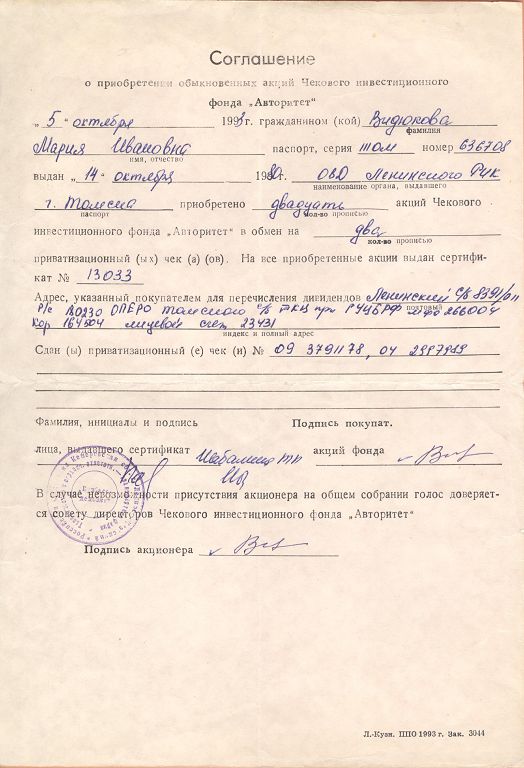 Соглашение
о приобретении обыкновенных акций Чекового инвестиционного
фонда „Авторитет"
„ 5 " октября 1993г. гражданином (кой) Видюкова
фамилия
Мария Ивановна паспорт, серия том номер 636708
имя, отчество
выдан „ 14 " октября 1980г. ОВД Ленинского РИК
наименование органа, выдавшего
г. Томска приобретено двадцать акций Чекового
паспорт кол-во прописью
инвестиционного фонда „Авторитет" в обмен на два
кол-во прописью
приватизационный (ых) чек (а) (ов). На все приобретенные акции выдан сертифи-
кат № 13033
Адрес, указанный покупателем для перечисления дивидендов Ленинский с/б 8391/011
почтовый
р/с ОПЕРО Томского с/б РКЦ при ГУЦБРФ мфо 266004
Кор 164804 лицевой счет 23431
индекс и полный адрес
Сдан (ы) приватизационный (е) чек (и) № 09 3791178, 04 2997989
Фамилия, инициалы и подпись Подпись покупат.
лица, выдавшего сертификат акций фонда
В случае невозможности присутствия акционера на общем собрании голос доверяет-
ся совету директоров Чекового инвестиционного фонда „Авторитет"
Подпись акционера
Л.-Кузн. ППО 1993 г. Зак. 3044